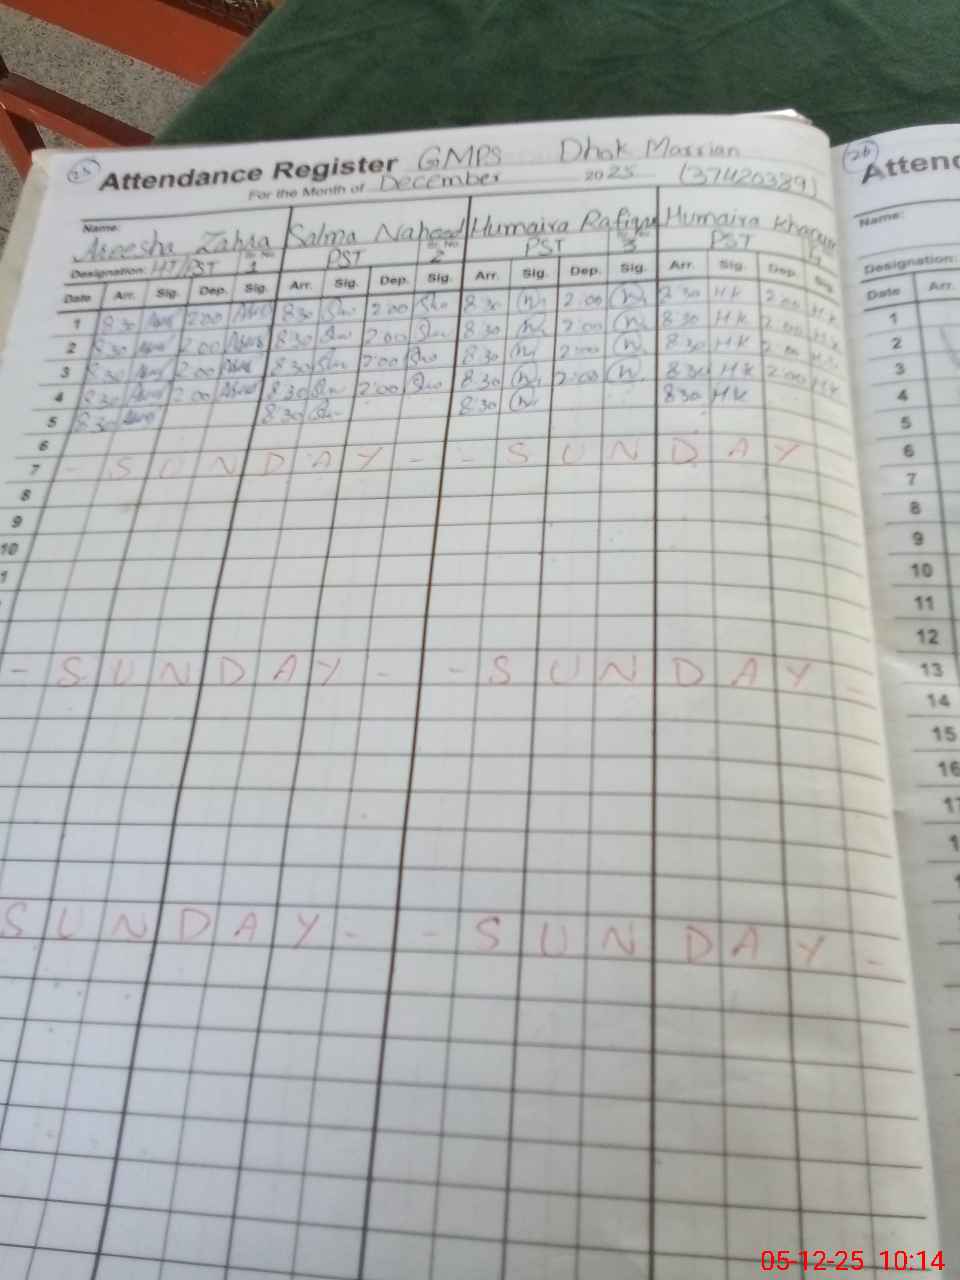 25 Attendance Register GMPS Dhok Marrian
For the Month of December 2025 (37420389)
Name: Areesha Zahra Salma Naheed Humaira Rafique Humaira
Designation: HT/PST Sr. No 1 PST Sr. No 2 PST Sr. No 3 PST 4
Date Arr. Sig. Dep. Sig. Arr. Sig. Dep. Sig. Arr. Sig. Dep. Sig. Arr. Sig. Dep. Sig.
1 8:30 2:00 8:30 2:00 8:30 2:00 8:30 HK 2:00 HK
2 8:30 2:00 8:30 2:00 8:30 2:00 8:30 HK 2:00 HK
3 8:30 2:00 8:30 2:00 8:30 2:00 8:30 HK 2:00 HK
4 8:30 2:00 8:30 2:00 8:30 2:00 8:30 HK 2:00 HK
5 8:30 8:30 8:30 8:30 HK
6
7 - S U N D A Y - - S U N D A Y
8
9
10
1
- S U N D A Y - - S U N D A Y -
S U N D A Y - - S U N D A Y -
26
Atten
Name:
Designation:
Date Arr.
1
2
3
4
5
6
7
8
9
10
11
12
13
14
15
16
05-12-25 10:14